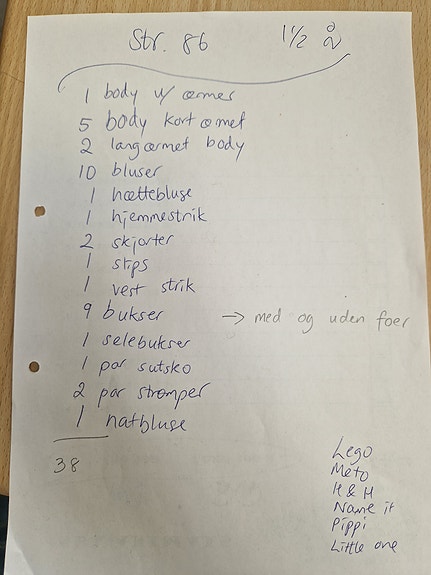 Str. 86
1 1/2 år
1 body u/ ærmer
5 body kortærmet
2 langærmet body
10 bluser
1 hættebluse
1 hjemmestrik
2 skjorter
1 slips
1 vest strik
9 bukser → med og uden foer
1 selebukser
1 par sutsko
2 par strømper
1 natbluse
38
Lego
Meto
H & H
Name it
Pippi
Little one